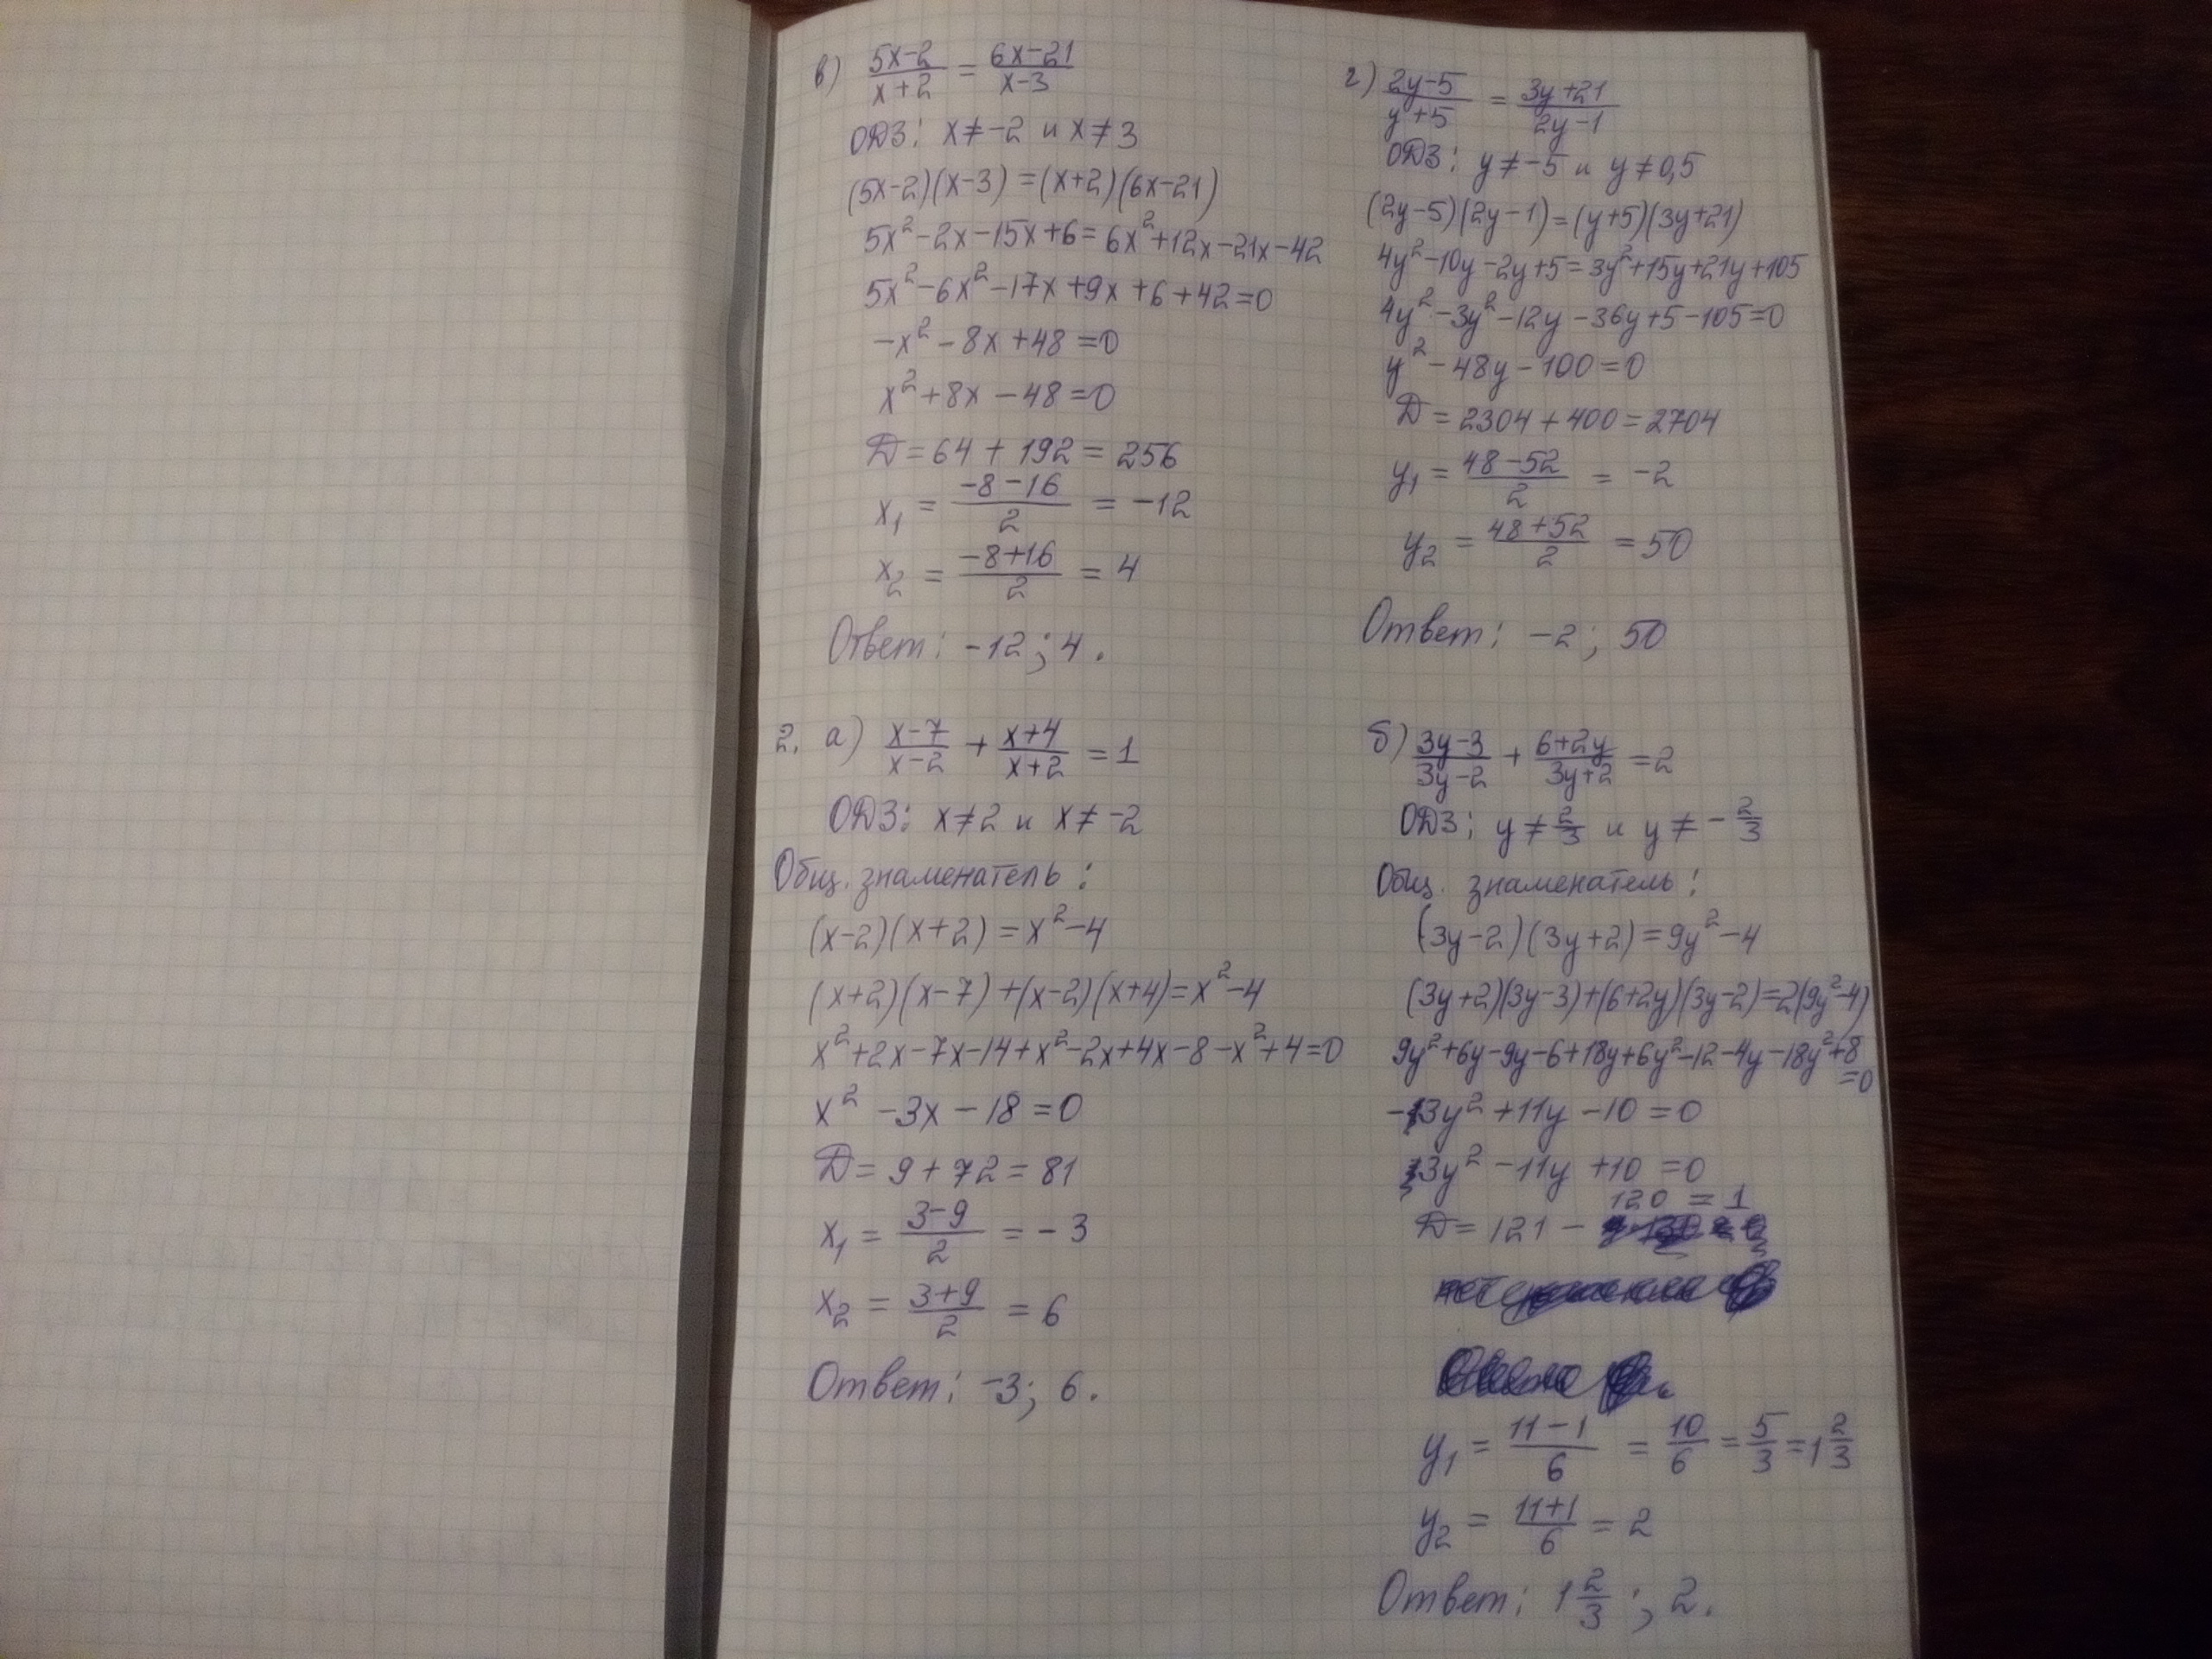 в) (5x-2)/(x+2) = (6x-21)/(x-3)
ОДЗ: x≠-2 и x≠3
(5x-2)(x-3)=(x+2)(6x-21)
5x²-2x-15x+6=6x²+12x-21x-42
5x²-6x²-17x+9x+6+42=0
-x²-8x+48=0
x²+8x-48=0
D=64+192=256
x₁ = (-8-16)/2 = -12
x₂ = (-8+16)/2 = 4
Ответ: -12; 4.
г) (2y-5)/(y+5) = (3y+21)/(2y-1)
ОДЗ: y≠-5 и y≠0,5
(2y-5)(2y-1)=(y+5)(3y+21)
4y²-10y-2y+5=3y²+15y+21y+105
4y²-3y²-12y-36y+5-105=0
y²-48y-100=0
D=2304+400=2704
y₁ = (48-52)/2 = -2
y₂ = (48+52)/2 = 50
Ответ: -2; 50
2. а) (x-7)/(x-2) + (x+4)/(x+2) = 1
ОДЗ: x≠2 и x≠-2
Общ. знаменатель:
(x-2)(x+2)=x²-4
(x+2)(x-7)+(x-2)(x+4)=x²-4
x²+2x-7x-14+x²-2x+4x-8-x²+4=0
x²-3x-18=0
D=9+72=81
x₁ = (3-9)/2 = -3
x₂ = (3+9)/2 = 6
Ответ: -3; 6.
б) (3y-3)/(3y-2) + (6+2y)/(3y+2) = 2
ОДЗ: y≠2/3 и y≠-2/3
Общ. знаменатель:
(3y-2)(3y+2)=9y²-4
(3y+2)(3y-3)+(6+2y)(3y-2)=2(9y²-4)
9y²+6y-9y-6+18y+6y²-12-4y-18y²+8
=0
-3y²+11y-10=0
3y²-11y+10=0
D=121-120=1
y₁ = (11-1)/6 = 10/6 = 5/3 = 1 2/3
y₂ = (11+1)/6 = 2
Ответ: 1 2/3; 2.